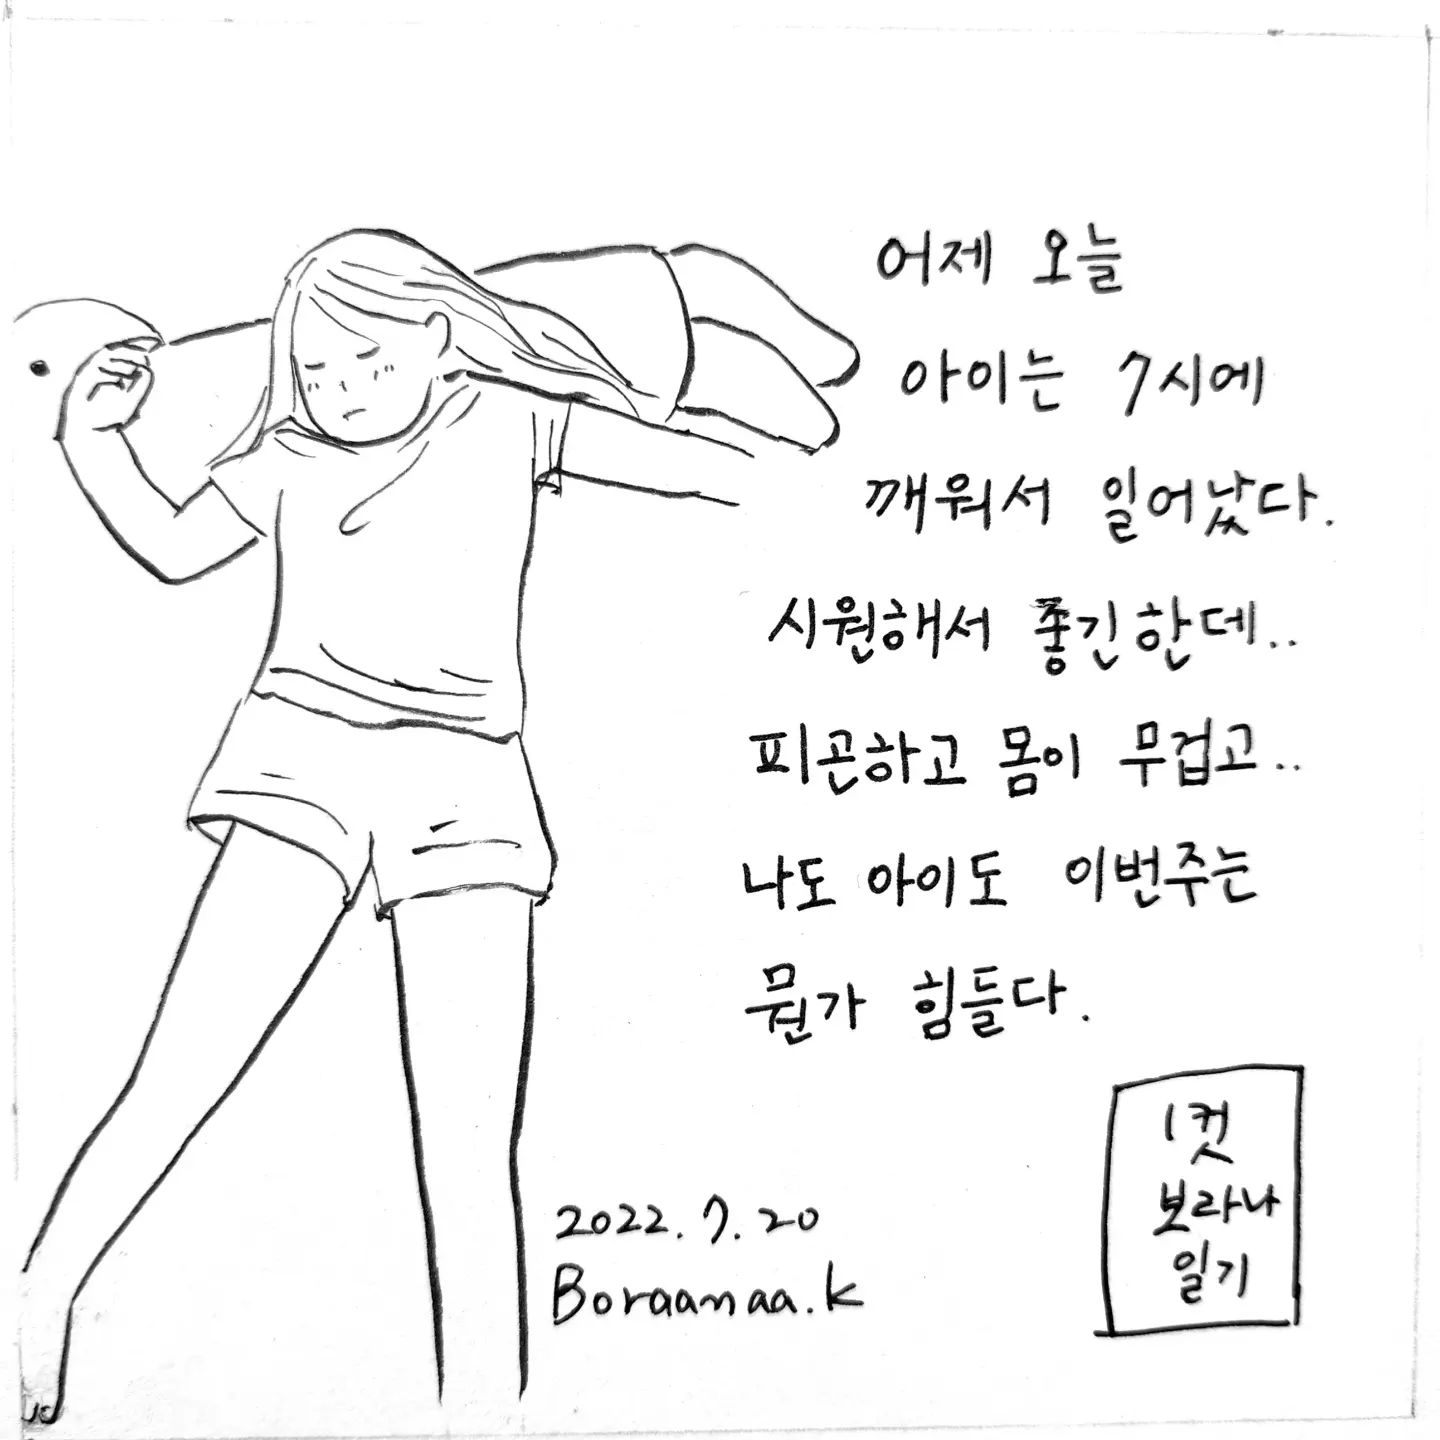 어제 오늘
아이는 7시에
깨워서 일어났다.
시원해서 좋긴한데..
피곤하고 몸이 무겁고..
나도 아이도 이번주는
뭔가 힘들다.
1컷
보라나
일기
2022.7.20
Boraanaa.k